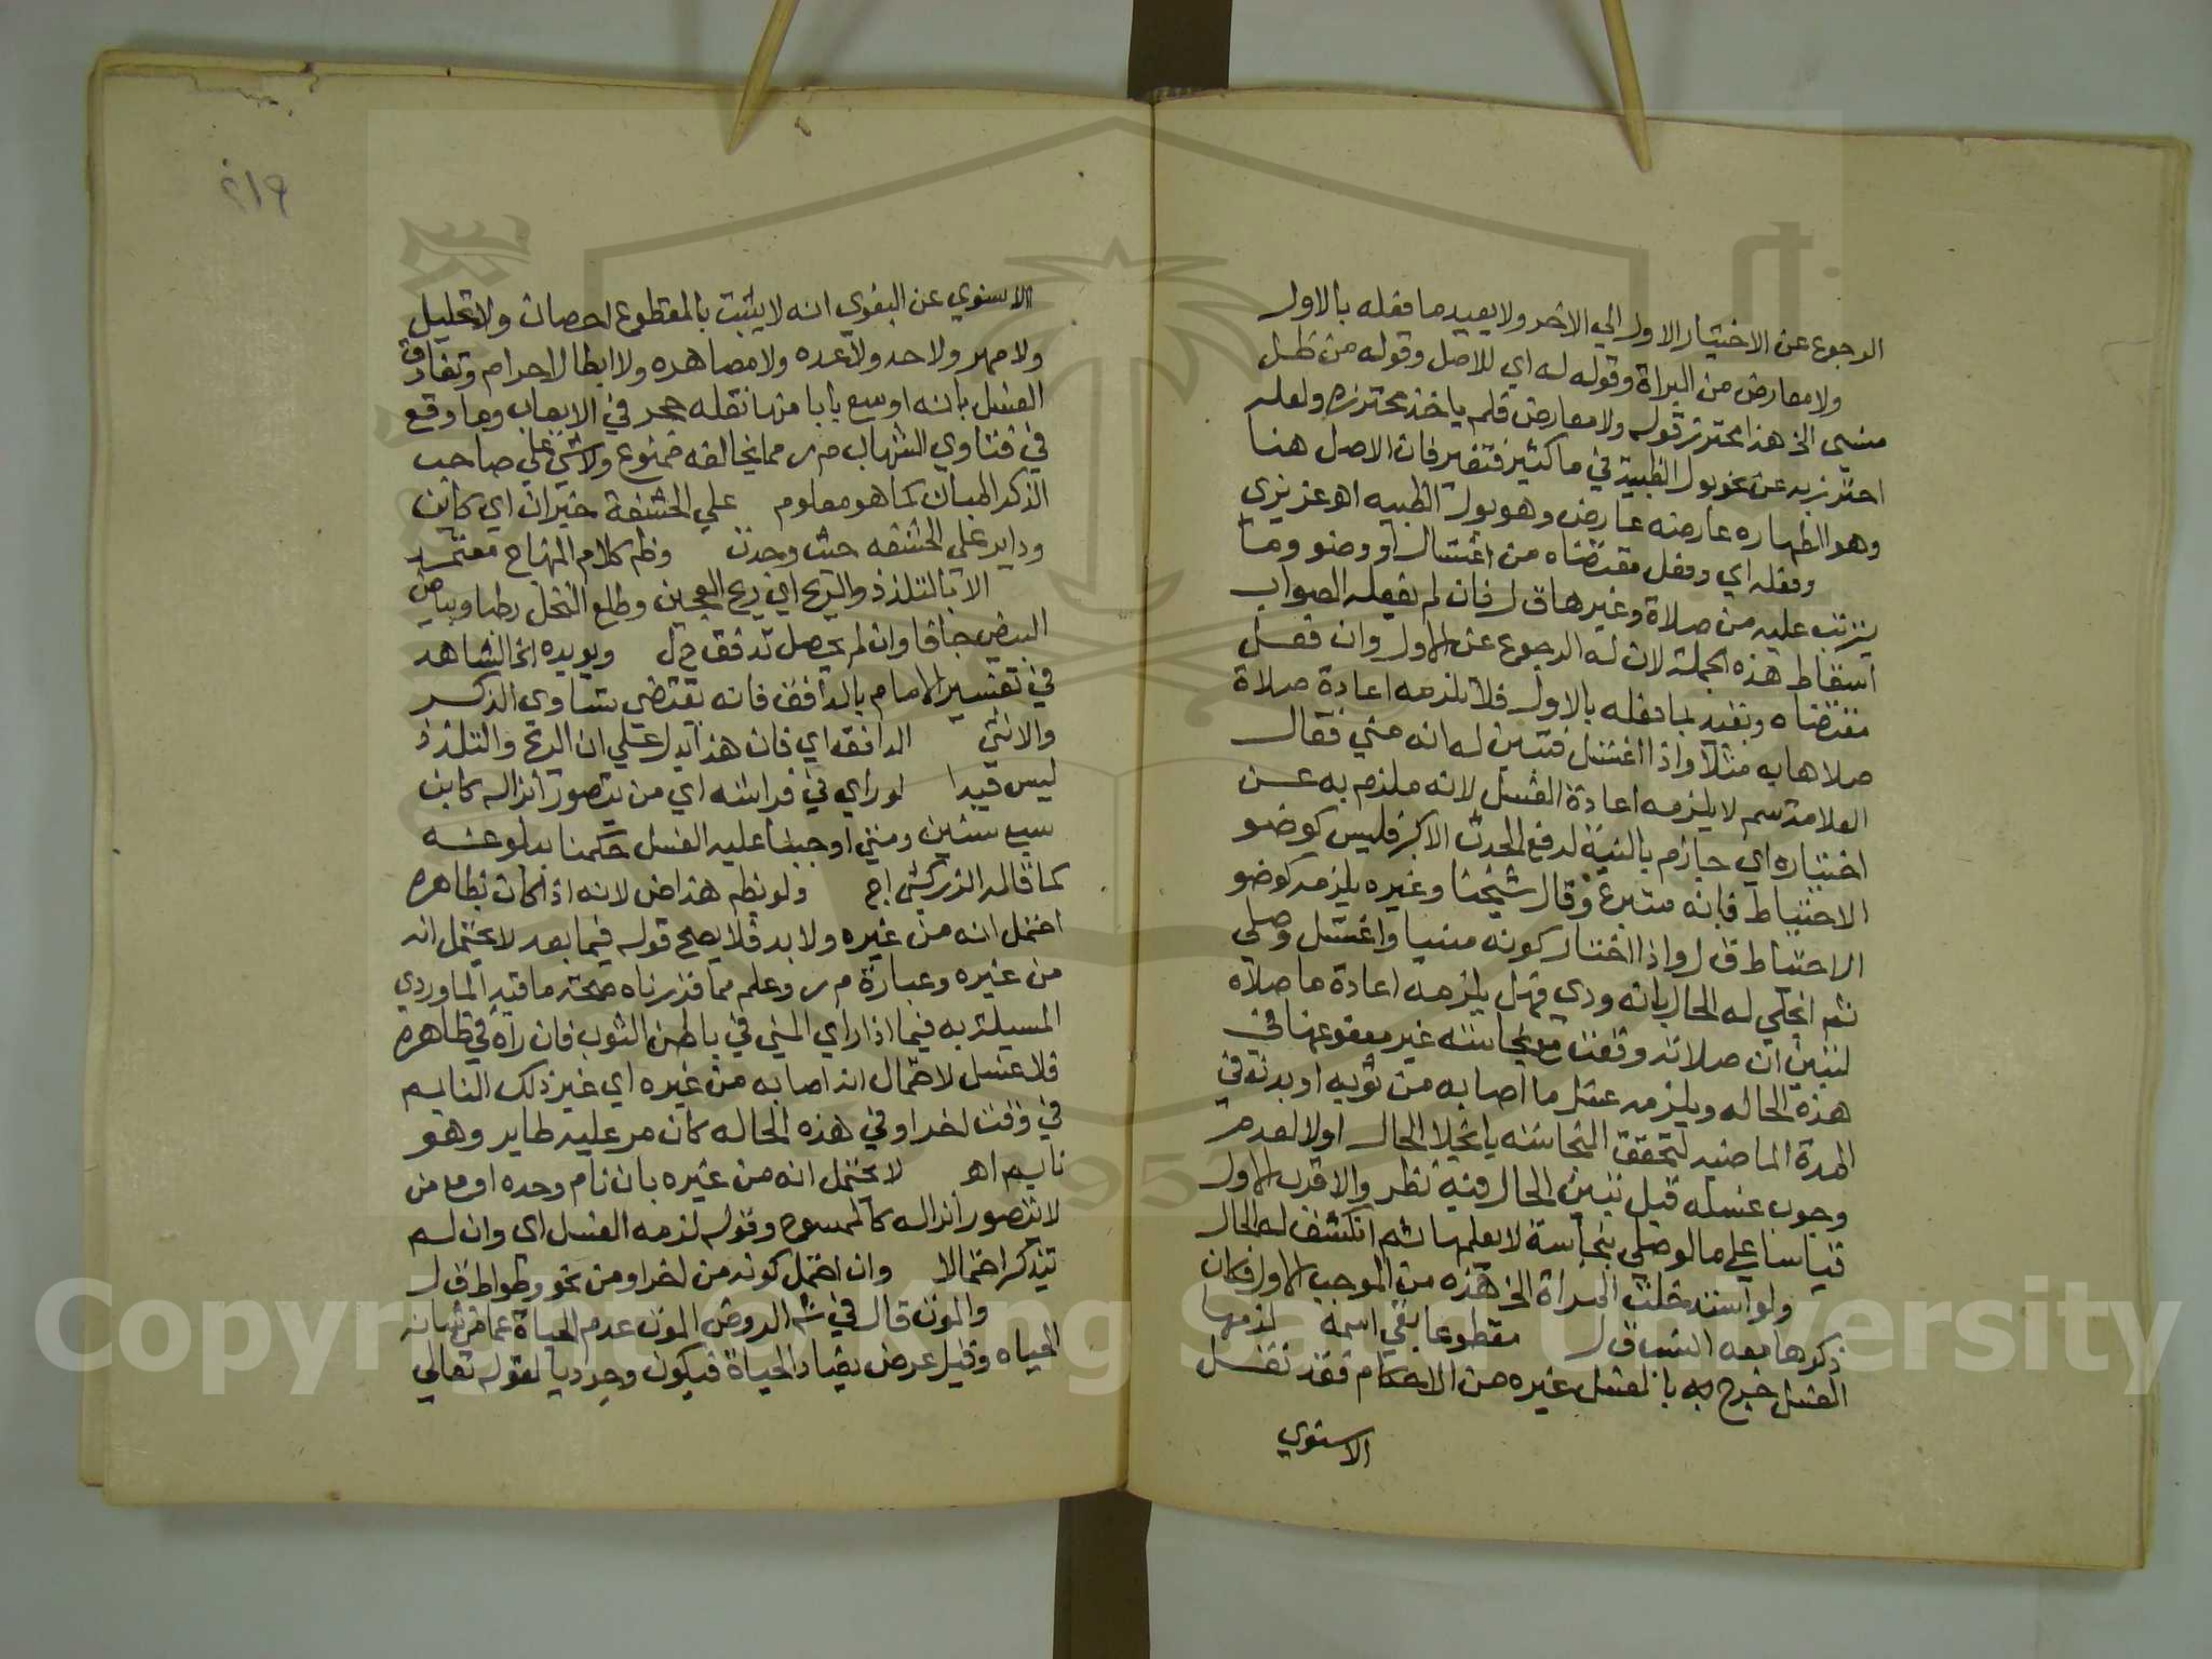 الرجوع عن الاختيار الاول الي الاخر ولا يعيد ما فعله بالاول
ولا معارض من البراة وقوله له اي للاصل وقوله من ظن
منسي الخ هذا محترز قوله ولا معارض فلم ياخذ محترزه ولعله
احترز به عن نحو بول الظبية في ما كثير فتغير فان الاصل هنا
وهو الطهاره عارضه عارض وهو بول الظبيه اهو عزيزي
وفعله اي وفعل مقتضاه من اغتسال او وضو وما
يترتب عليه من صلاة وغيرها ق ل فان لم يفعله الصواب
اسقاط هذه الجملة لان له الرجوع عن الاول وان فعل
مقتضاه ويعيد لما فعله بالاول فلا يلزمه اعادة صلاة
صلاها به مثلا واذا اغتسل فتبين له انه مني فقال
العلامة سم لا يلزمه اعادة الغسل لانه ملزم به عن
اختياره اي جازم بالنية لرفع الحدث الاكبر فليس كوضو
الاحتياط فانه متبرع وقال شيخنا وغيره يلزمه كوضو
الاحتياط ق ل واذا اختار كونه منيا واغتسل وصلي
ثم انجلي له الحال بانه ودي فهل يلزمه اعادة ما صلاه
لتبين ان صلاته وقعت مع نجاسة غير معفو عنها في
هذه الحاله ويلزمه غسل ما اصابه من ثوبه او بدنه في
المدة الماضيه لتحقق النجاسه بانجلا الحال اولا لعدم
وجوب غسله قبل تبين الحال فيه نظر والاقرب الاول
قياسا علي ما لو صلي بنجاسة لا يعلمها ثم انكشف له الحال
ولو استدخلت المراة الخ هذه من الموجب الاول فكان
ذكرها معه انسب ق ل مقطوعا بقي اسمه لزمها
الغسل خرج به بالغسل غيره من الاحكام فقد نقل
الاسنوي
٢١٩
الاسنوي عن البغوي انه لا يثبت بالمقطوع احصان ولا تحليل
ولا مهر ولا حد ولا عده ولا مصاهره ولا ابطال احرام وتفارق
الغسل بانه اوسع بابا منها نقله حجر في الايعاب وما وقع
في فتاوي الشهاب م ر مما يخالفه فممنوع ولا شي علي صاحب
الذكر المبان كما هو معلوم علي الحشفة خبر ان اي كاين
وداير علي الحشفه حيث وجدت وظ م كلام المنهاج معتمد
الا بالتلذذ والريح اي ريح العجين وطلع النخل رطبا وبياض
البيض جافا وان لم يحصل تدفق ح ل ويويده الخ الشاهد
في تفسير الامام بالدافق فانه يقتضي تساوي الذكر
والانثي الدافق اي فان هذا يدل علي ان الريح والتلذذ
ليس قيدا لو راي في فراشه اي من يتصور انزاله كابن
سبع سنين ومتي اوجبنا عليه الغسل حكمنا ببلوغه
كما قاله الزركشي اج ولو بظ م هذا ض لانه اذا كان بظاهره
احتمل انه من غيره ولا بد فلا يصح قوله فيما بعد لا يحتمل انه
من غيره وعبارة م ر وعلم مما قررناه صحة ما قيد الماوردي
المسيلة به فيما اذا راي المني في باطن الثوب فان رآه في ظاهره
فلا غسل لاحتمال انه اصابه من غيره اي غير ذلك النايم
في وقت اخر او في هذه الحاله كان مر عليه طاير وهو
نايم اهو لا يحتمل انه من غيره بان نام وحده او مع من
لا يتصور انزاله كالممسوح وقوله لزمه الغسل اي وان لم
يتذكر احتمالا وان احتمل كونه من اخر او من نحو وطواط ق ل
والموت قال في ش الروض الموت عدم الحياة عما من شانه
الحياه وقيل عرض يضاد الحياة فيكون وجوديا لقوله تعالي
Copyright © King Saud University